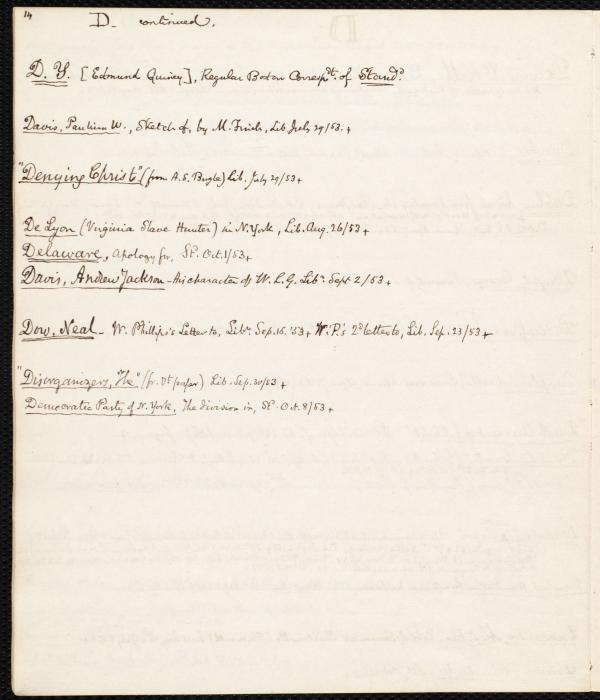 14
D. continued.
D. Y. [Edmund Quincy], Regular Boston Correspt. of Standd.
Davis, Paulina W., Sketch of, by M. Lib July 29/53.+
"Denying Christ" (from A. S. Bugle) Lib. July 29/53+
De Lyon (Virginia Slave Hunter) in N. York, Lib. Aug. 26/53+
Delaware, Apology for, St. Oct. 1/53+
Davis, Andrew Jackson - His character of W. L. G. Libr. Sept 2/53+
Dow, Neal - W. Phillips's Letter to, Libr. Sep. 16. '53+ W. P.'s 2d letter to, Lib. Sep. 23/53+
"Disorganizers, The" (fr. Vt paper) Lib. Sep. 30/53+
Democratic Party of N. York, The division in, St. Oct. 8/53+